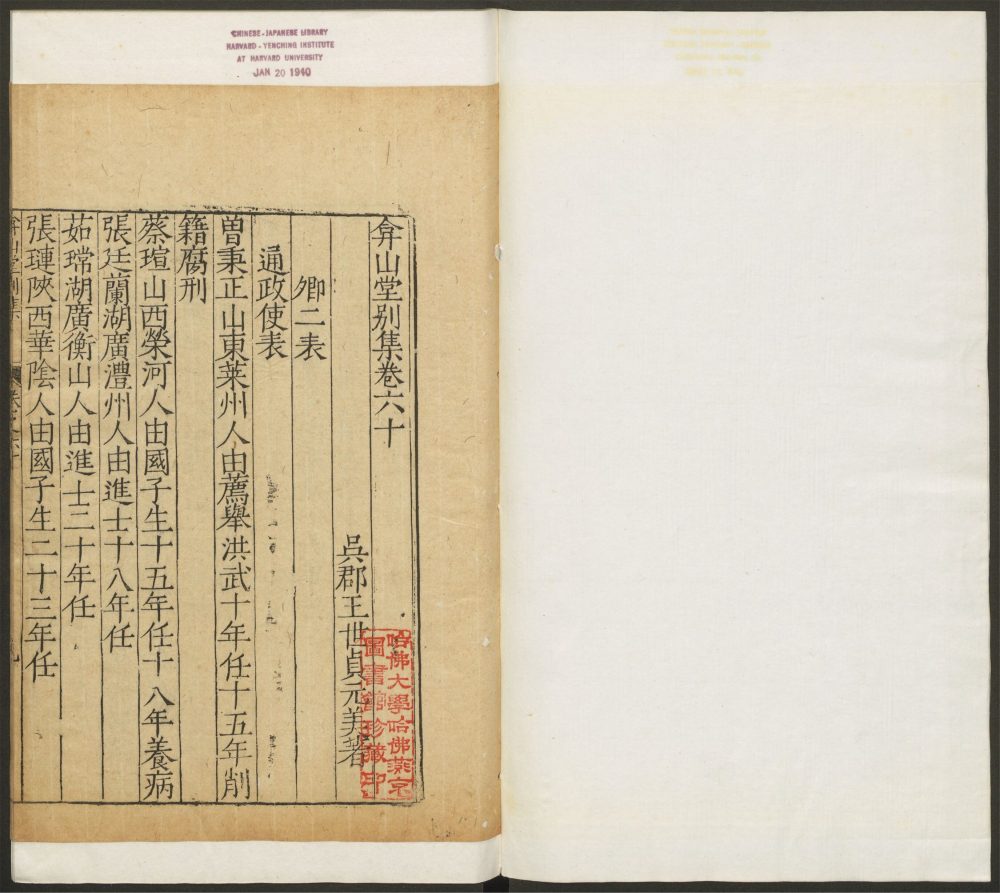 CHINESE-JAPANESE LIBRARY
HARVARD-YENCHING INSTITUTE
AT HARVARD UNIVERSITY
JAN 20 1940
弇山堂别集卷六十
吳郡王世貞元美著
卿二表
通政使表
曾秉正山東莱州人由薦舉洪武十年任十五年削
籍腐刑
蔡瑄山西榮河人由國子生十五年任十八年養病
張廷蘭湖廣澧州人由進士十八年任
茹瑺湖廣衡山人由進士二十年任
張璉陜西華隂人由國子生二十三年任
哈佛大學哈佛燕京
圖書館珍藏印